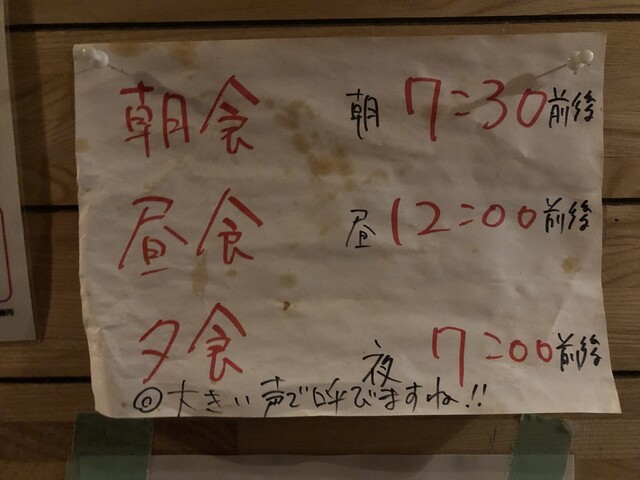 朝食 朝 7:30前後
昼食 昼 12:00前後
夕食 夜 7:00前後
◎大きい声で呼びますね!!